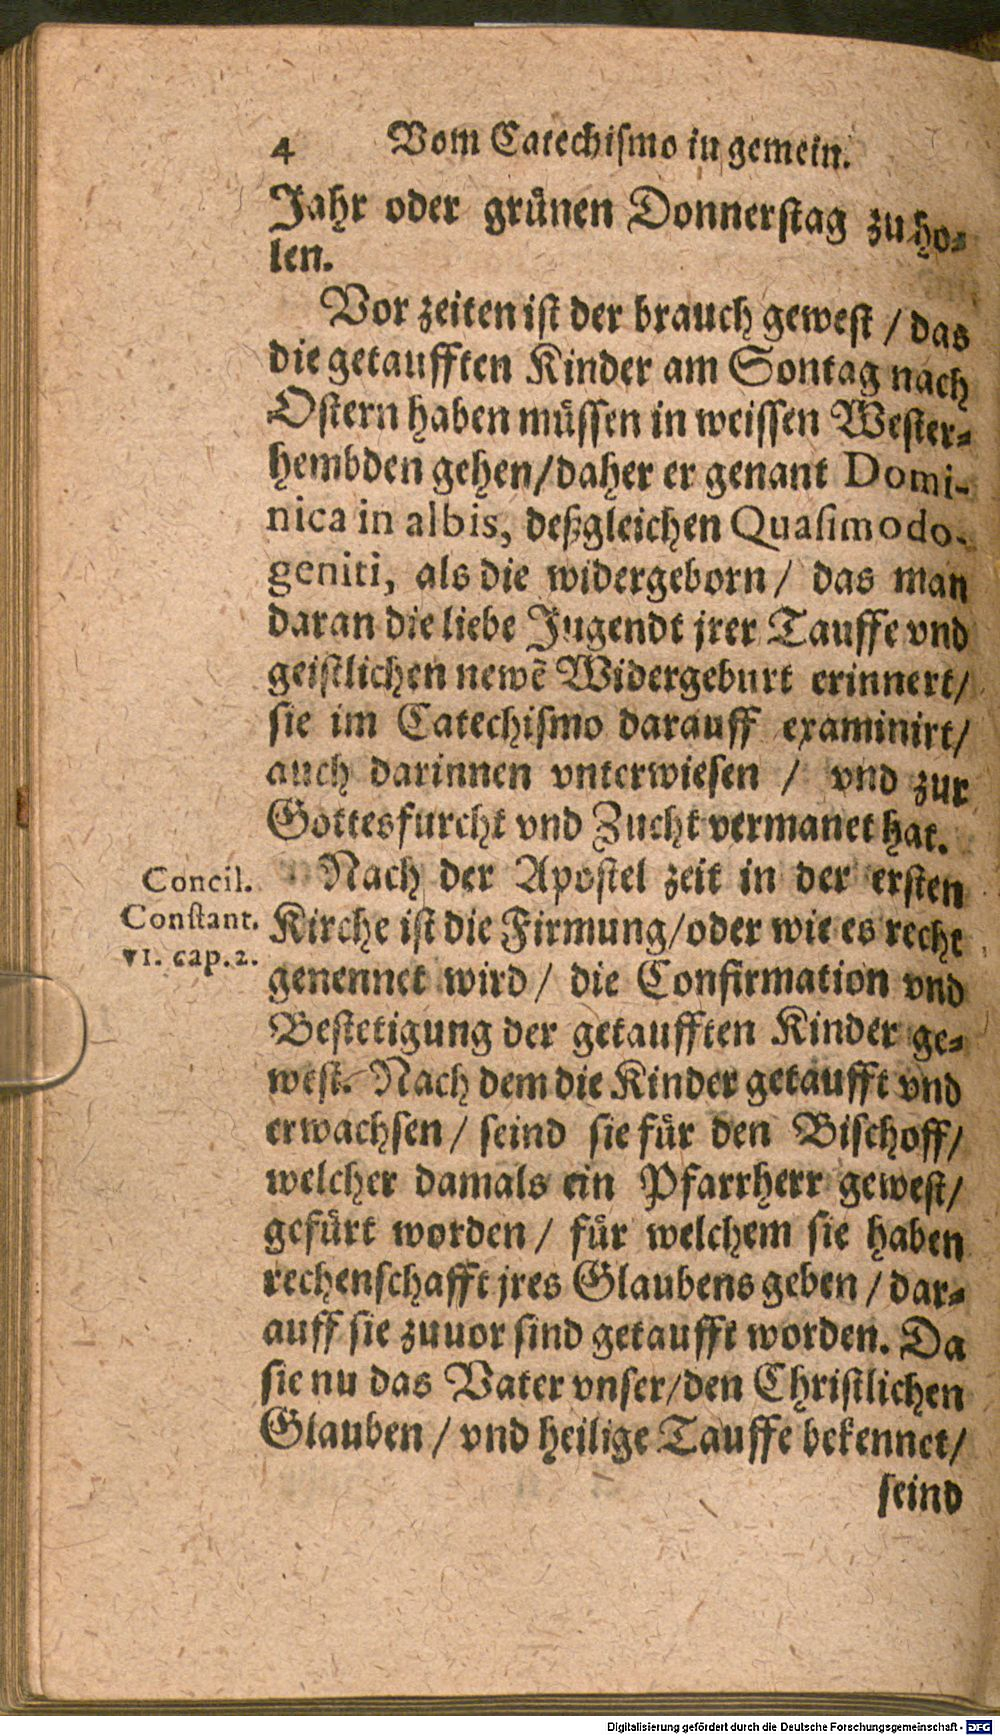 4 Vom Catechiſmo in gemein.
Jahr oder gruͤnen Donnerſtag zu ho⸗
len.
Vor zeiten iſt der brauch geweſt / das
die getaufften Kinder am Sontag nach
Oſtern haben muͤſſen in weiſſen Weſter⸗
hembden gehen/daher er genant Domi-
nica in albis, deßgleichen Quaſimodo-
geniti, als die widergeborn/ das man
daran die liebe Jugendt jrer Tauffe vnd
geiſtlichen newẽ Widergeburt erinnert/
ſie im Catechiſmo darauff examinirt/
auch darinnen vnterwieſen / vnd zur
Gottesfurcht vnd Zucht vermanet hat.
Concil.
Conſtant.
VI. cap.2.
Nach der Apoſtel zeit in der erſten
Kirche iſt die Firmung/oder wie es recht
genennet wird/ die Confirmation vnd
Beſtetigung der getaufften Kinder ge⸗
weſt. Nach dem die Kinder getaufft vnd
erwachſen/ ſeind ſie fuͤr den Biſchoff/
welcher damals ein Pfarrherr geweſt/
gefuͤrt worden/ fuͤr welchem ſie haben
rechenſchafft jres Glaubens geben/dar⸗
auff ſie zuuor ſind getaufft worden. Da
ſie nu das Vater vnſer/den Chriſtlichen
Glauben/ vnd heilige Tauffe bekennet/
ſeind
Digitalisierung gefördert durch die Deutsche Forschungsgemeinschaft - DFG